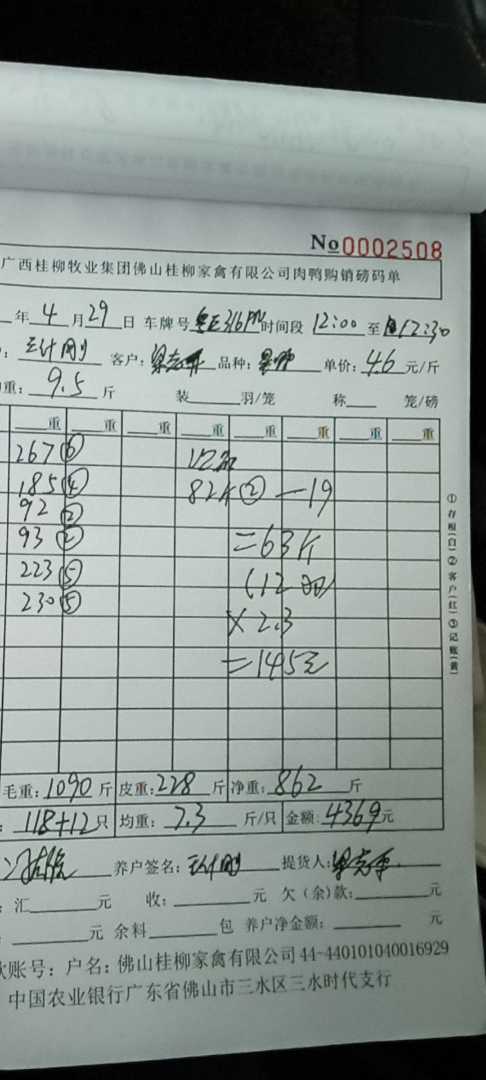 No0002508
广西桂柳牧业集团佛山桂柳家禽有限公司肉鸭购销磅码单
年 4 月 29 日 车牌号 316 时间段 12:00 至 12:30
客户: 品种: 单价: 4.6 元/斤
重: 9.5 斤 装 羽/笼 称 笼/磅
重 重 重 重 重 重 重 重
267⑥
185④ 82斤② —19
92②
93② =63斤
223⑤ (12
230⑤ ×2.3
=145元
毛重: 1090 斤 皮重: 228 斤 净重: 862 斤
118+12 只 均重: 7.3 斤/只 金额: 4369 元
养户签名: 提货人:
: 汇 元 收: 元 欠(余)款: 元
元 余料 包 养户净金额: 元
款账号: 户名: 佛山桂柳家禽有限公司 44-440101040016929
中国农业银行广东省佛山市三水区三水时代支行
①存根(白)②客户(红)③记账(黄)